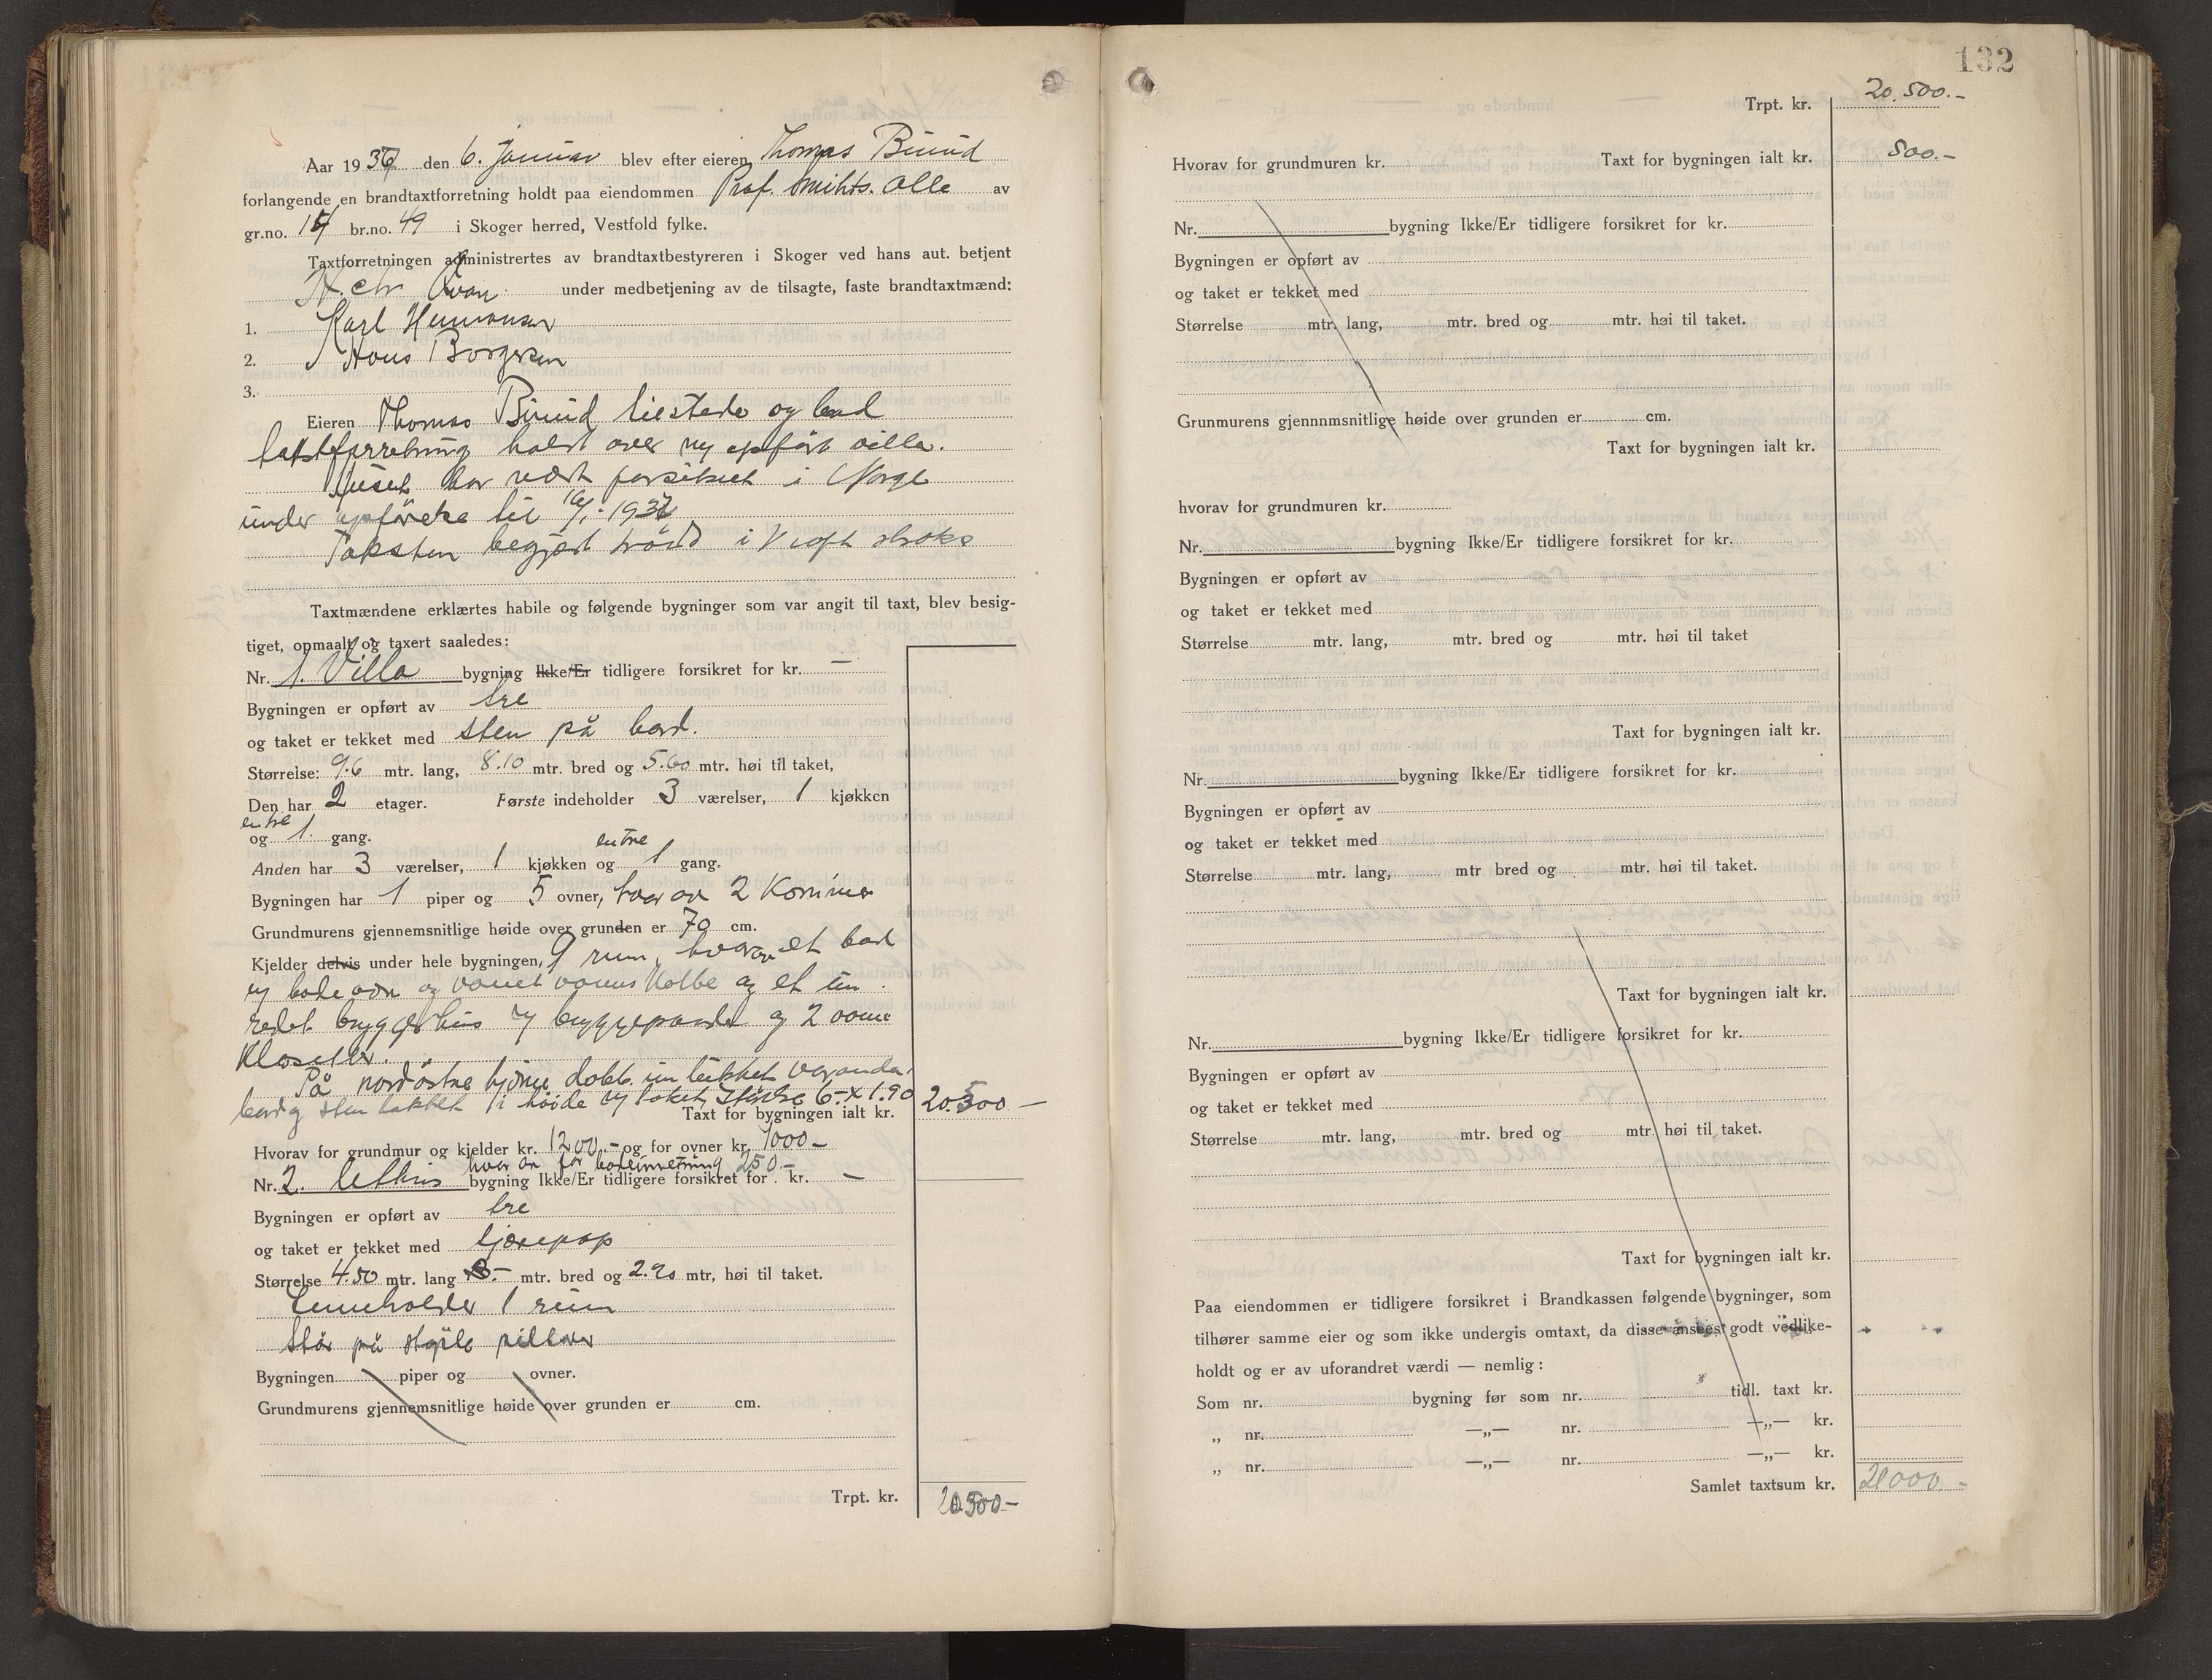 Aar 1937 den 6. Januar blev efter eieren Thomas Buind
forlangende en brandtaxtforretning holdt paa eiendommen Prof. Smiths. Alle av
gr.no. br.no. 49 i Skoger herred, Vestfold fylke.
Taxtforretningen administrertes av brandtaxtbestyreren i Skoger ved hans aut. betjent
under medbetjening av de tilsagte, faste brandtaxtmænd:
1. Karl Hermansen
2. Hans Borgersen
3.
Eieren Thomas Buind tilstede og bad
takstforretning holdt over ny opført villa.
Huset har vært forsikret i Norge
under opførelse til 16/1-1937
Taksten begjært trådd i kraft straks
Taxtmændene erklærtes habile og følgende bygninger som var angit til taxt, blev besig-
tiget, opmaalt og taxert saaledes:
Nr. 1. Villa bygning Ikke/Er tidligere forsikret for kr. —
Bygningen er opført av tre
og taket er tekket med sten på bord.
Størrelse: 9.6 mtr. lang, 8.10 mtr. bred og 5.60 mtr. høi til taket,
Den har 2 etager. Første indeholder 3 værelser, 1 kjøkken
entre
og 1. gang.
entre
Anden har 3 værelser, 1 kjøkken og 1 gang.
Bygningen har 1 piper og 5 ovner, hvorav 2 Kaminer
Grundmurens gjennemsnitlige høide over grunden er 70 cm.
Kjelder delvis under hele bygningen, 9 rum, hvorav et bad
m badeovn og et inn-
redet bryggerhus m bryggepanne og 2 vann
Klosetter.
På nordøstre hjørne dobb. veranda.
bord og sten tekket i høide m taket Størrelse 6.- x 1.90
Taxt for bygningen ialt kr. 20.500 —
Hvorav for grundmur og kjelder kr. 1200.- og for ovner kr. 1000 -
hvorav for badeinretning 250.-
Nr. 2. bygning Ikke/Er tidligere forsikret for kr. —
Bygningen er opført av tre
og taket er tekket med tjærepap
Størrelse 4.50 mtr. lang 3.- mtr. bred og 2.20 mtr, høi til taket.
Inneholder 1 rum
Står på støpte pillarer
Bygningen piper og ovner.
Grundmurens gjennemsnitlige høide over grunden er cm.
Trpt. kr. 20.500 -
132
Trpt. kr. 20.500.-
Hvorav for grundmuren kr. Taxt for bygningen ialt kr. 500.-
Nr. bygning Ikke/Er tidligere forsikret for kr.
Bygningen er opført av
og taket er tekket med
Størrelse mtr. lang, mtr. bred og mtr. høi til taket.
Grunmurens gjennnmsnitlige høide over grunden er cm.
Taxt for bygningen ialt kr.
hvorav for grundmuren kr.
Nr. bygning Ikke/Er tidligere forsikret for kr.
Bygningen er opført av
og taket er tekket med
Størrelse mtr. lang, mtr. bred og mtr. høi til taket
Taxt for bygningen ialt kr.
Nr. bygning Ikke/Er tidligere forsikret for kr.
Bygningen er opført av
og taket er tekket med
Størrelse mtr. lang, mtr bred og mtr. høi til taket.
Taxt for bygningen ialt kr.
Nr. bygning Ikke/Er tidligere forsikret for kr.
Bygningen er opført av
og taket er tekket med
Størrelse mtr. lang, mtr. bred og mtr. høi til taket.
Taxt for bygningen ialt kr.
Paa eiendommen er tidligere forsikret i Brandkassen følgende bygninger, som
tilhører samme eier og som ikke undergis omtaxt, da disse ansees godt vedlike-
holdt og er av uforandret værdi — nemlig:
Som nr. bygning før som nr. tidl. taxt kr.
„ nr. —„— nr. —„— kr.
„ nr. —„— nr. —„— kr.
Samlet taxtsum kr. 21000.-